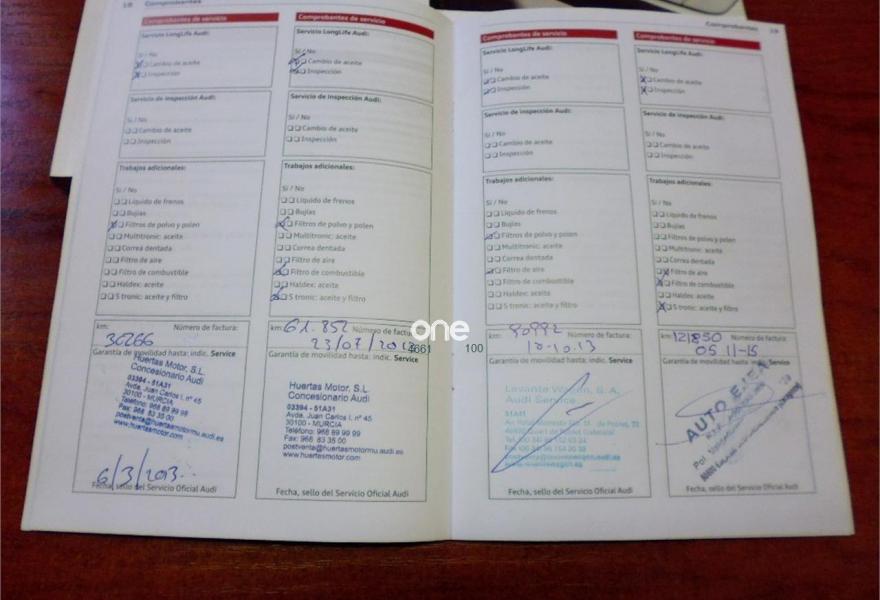 18 Comprobantes
Comprobantes de servicio
Servicio LongLife Audi:
Sí / No
Cambio de aceite
Inspección
Servicio de inspección Audi:
Sí / No
Cambio de aceite
Inspección
Trabajos adicionales:
Sí / No
Líquido de frenos
Bujías
Filtros de polvo y polen
Multitronic: aceite
Correa dentada
Filtro de aire
Filtro de combustible
Haldex: aceite
S tronic: aceite y filtro
km: Número de factura:
30266
Garantía de movilidad hasta: indic. Service
Huertas Motor, S.L.
Concesionario Audi
03394 - 51A31
Avda. Juan Carlos I, nº 45
30100 - MURCIA
Teléfono: 968 89 99 98
Fax: 968 83 35 00
postventa@huertasmotormu.audi.es
www.huertasmotor.com
6/3/2013.
Fecha, sello del Servicio Oficial Audi
Comprobantes de servicio
Servicio LongLife Audi:
Sí / No
Cambio de aceite
Inspección
Servicio de inspección Audi:
Sí / No
Cambio de aceite
Inspección
Trabajos adicionales:
Sí / No
Líquido de frenos
Bujías
Filtros de polvo y polen
Multitronic: aceite
Correa dentada
Filtro de aire
Filtro de combustible
Haldex: aceite
S tronic: aceite y filtro
km: 61.852 Número de factura:
23/07/2013
Garantía de movilidad hasta: indic. Service
Huertas Motor, S.L.
Concesionario Audi
03394 - 51A31
Avda. Juan Carlos I, nº 45
30100 - MURCIA
Teléfono: 968 89 99 98
Fax: 968 83 35 00
postventa@huertasmotormu.audi.es
www.huertasmotor.com
Fecha, sello del Servicio Oficial Audi
one
4661 100
Comprobantes 19
Comprobantes de servicio
Servicio LongLife Audi:
Sí / No
Cambio de aceite
Inspección
Servicio de inspección Audi:
Sí / No
Cambio de aceite
Inspección
Trabajos adicionales:
Sí / No
Líquido de frenos
Bujías
Filtros de polvo y polen
Multitronic: aceite
Correa dentada
Filtro de aire
Filtro de combustible
Haldex: aceite
S tronic: aceite y filtro
km: 90992 Número de factura:
10.10.13
Garantía de movilidad hasta: indic. Service
Levante Wagen, S.A.
Audi Service
Fecha, sello del Servicio Oficial Audi
Comprobantes de servicio
Servicio LongLife Audi:
Sí / No
Cambio de aceite
Inspección
Servicio de inspección Audi:
Sí / No
Cambio de aceite
Inspección
Trabajos adicionales:
Sí / No
Líquido de frenos
Bujías
Filtros de polvo y polen
Multitronic: aceite
Correa dentada
Filtro de aire
Filtro de combustible
Haldex: aceite
S tronic: aceite y filtro
km: 121850 Número de factura:
05 11-15
Garantía de movilidad hasta: indic. Service
AUTO
Fecha, sello del Servicio Oficial Audi